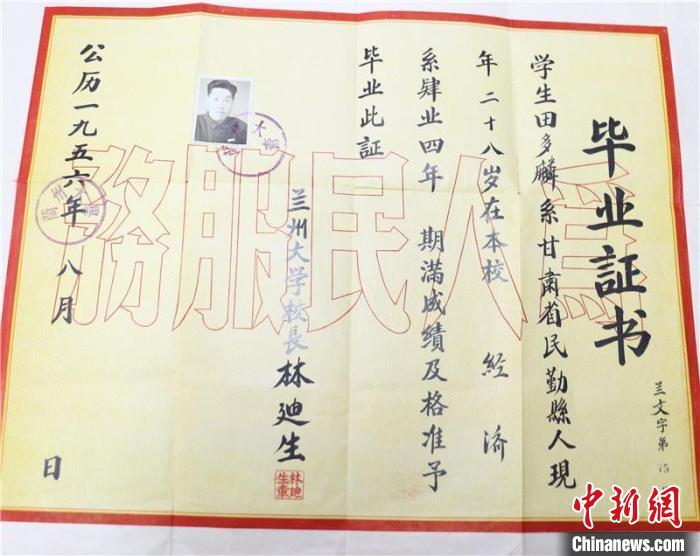 毕业証书
兰文字第 75
学生田多麟系甘肃省民勤縣人现
年二十八岁在本校 经济
系肄业四年 期满成绩及格准予
毕业此証
兰州大学校長 林迪生
林迪生章
公历一九五六年 八月 日
為人民服務
中新网
Chinanews.com